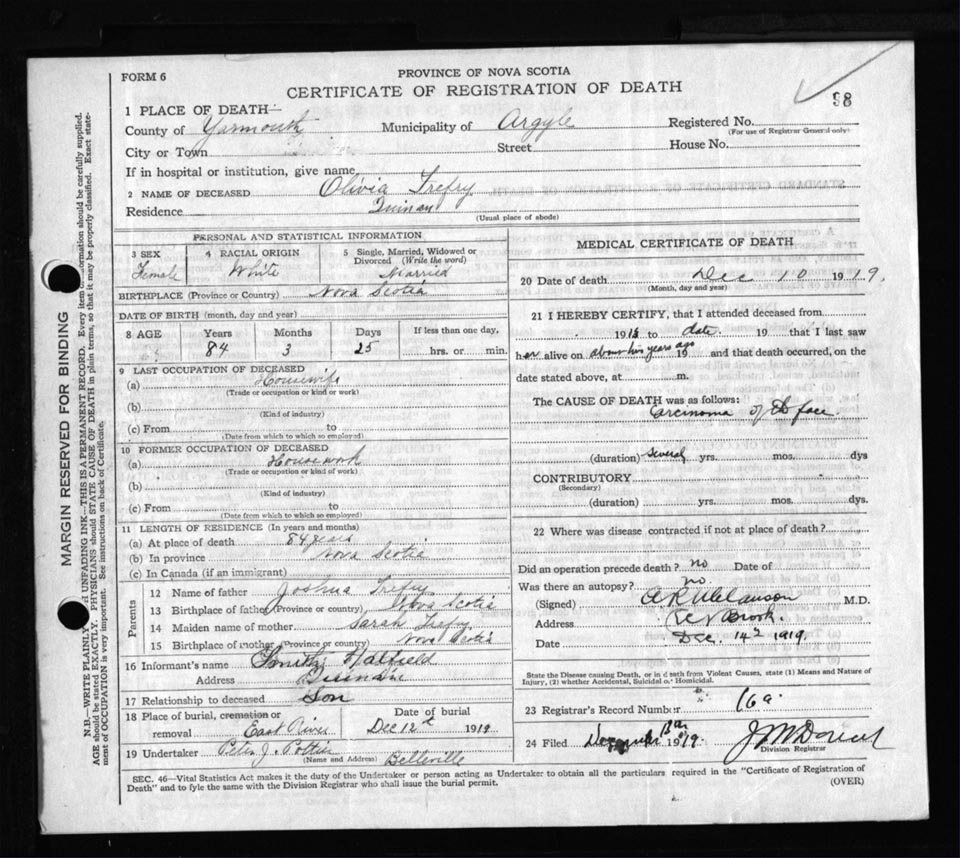 FORM 6
PROVINCE OF NOVA SCOTIA
CERTIFICATE OF REGISTRATION OF DEATH
98
1 PLACE OF DEATH—
County of Yarmouth Municipality of Argyle Registered No.
(For use of Registrar General only)
City or Town Street House No.
If in hospital or institution, give name
2 NAME OF DECEASED Olivia Trefry
Residence Quinan
(Usual place of abode)
PERSONAL AND STATISTICAL INFORMATION
3 SEX Female
4 RACIAL ORIGIN White
5 Single, Married, Widowed or Divorced (Write the word) Married
BIRTHPLACE (Province or Country) Nova Scotia
DATE OF BIRTH (month, day and year)
8 AGE Years Months Days If less than one day,
84 3 25 hrs. or min.
9 LAST OCCUPATION OF DECEASED
(a) Housewife
(Trade or occupation or kind or work)
(b)
(Kind of industry)
(c) From to
(Date from which to which so employed)
10 FORMER OCCUPATION OF DECEASED
(a) Housework
(Trade or occupation or kind of work)
(b)
(Kind of industry)
(c) From to
(Date from which to which so employed)
11 LENGTH OF RESIDENCE (In years and months)
(a) At place of death 84 years
(b) In province Nova Scotia
(c) In Canada (if an immigrant)
Parents
12 Name of father Joshua Trefry
13 Birthplace of father (Province or country) Nova Scotia
14 Maiden name of mother Sarah Trefry
15 Birthplace of mother (Province or country) Nova Scotia
16 Informant's name Hatfield
Address Quinan
17 Relationship to deceased Son
18 Place of burial, cremation or removal East River
Date of burial Dec 12 1919
19 Undertaker Peter J. Pottier Belleville
(Name and Address)
MEDICAL CERTIFICATE OF DEATH
20 Date of death Dec 10 1919.
(Month, day and year)
21 I HEREBY CERTIFY, that I attended deceased from
19 to date. 19 that I last saw
her alive on about two years ago 19 and that death occurred, on the
date stated above, at m.
The CAUSE OF DEATH was as follows:
Carcinoma of the face.
(duration) several yrs. mos. dys
CONTRIBUTORY
(Secondary)
(duration) yrs. mos. dys.
22 Where was disease contracted if not at place of death?
Did an operation precede death? no Date of
Was there an autopsy? no.
(Signed) M.D.
Address Brook.
Date Dec. 14 1919.
State the Disease causing Death, or in death from Violent Causes, state (1) Means and Nature of
Injury, (2) whether Accidental, Suicidal or Homicidal.
23 Registrar's Record Number 16a
24 Filed 1919.
Division Registrar
SEC. 46—Vital Statistics Act makes it the duty of the Undertaker or person acting as Undertaker to obtain all the particulars required in the "Certificate of Registration of
Death" and to fyle the same with the Division Registrar who shall issue the burial permit.
(OVER)
MARGIN RESERVED FOR BINDING
N.B.—WRITE PLAINLY UNFADING INK—THIS IS A PERMANENT RECORD. Every item of information should be carefully supplied.
AGE should be stated EXACTLY. PHYSICIANS should STATE CAUSE OF DEATH in plain terms, so that it may be properly classified. Exact state-
ment of OCCUPATION is very important. See instructions on back of Certificate.